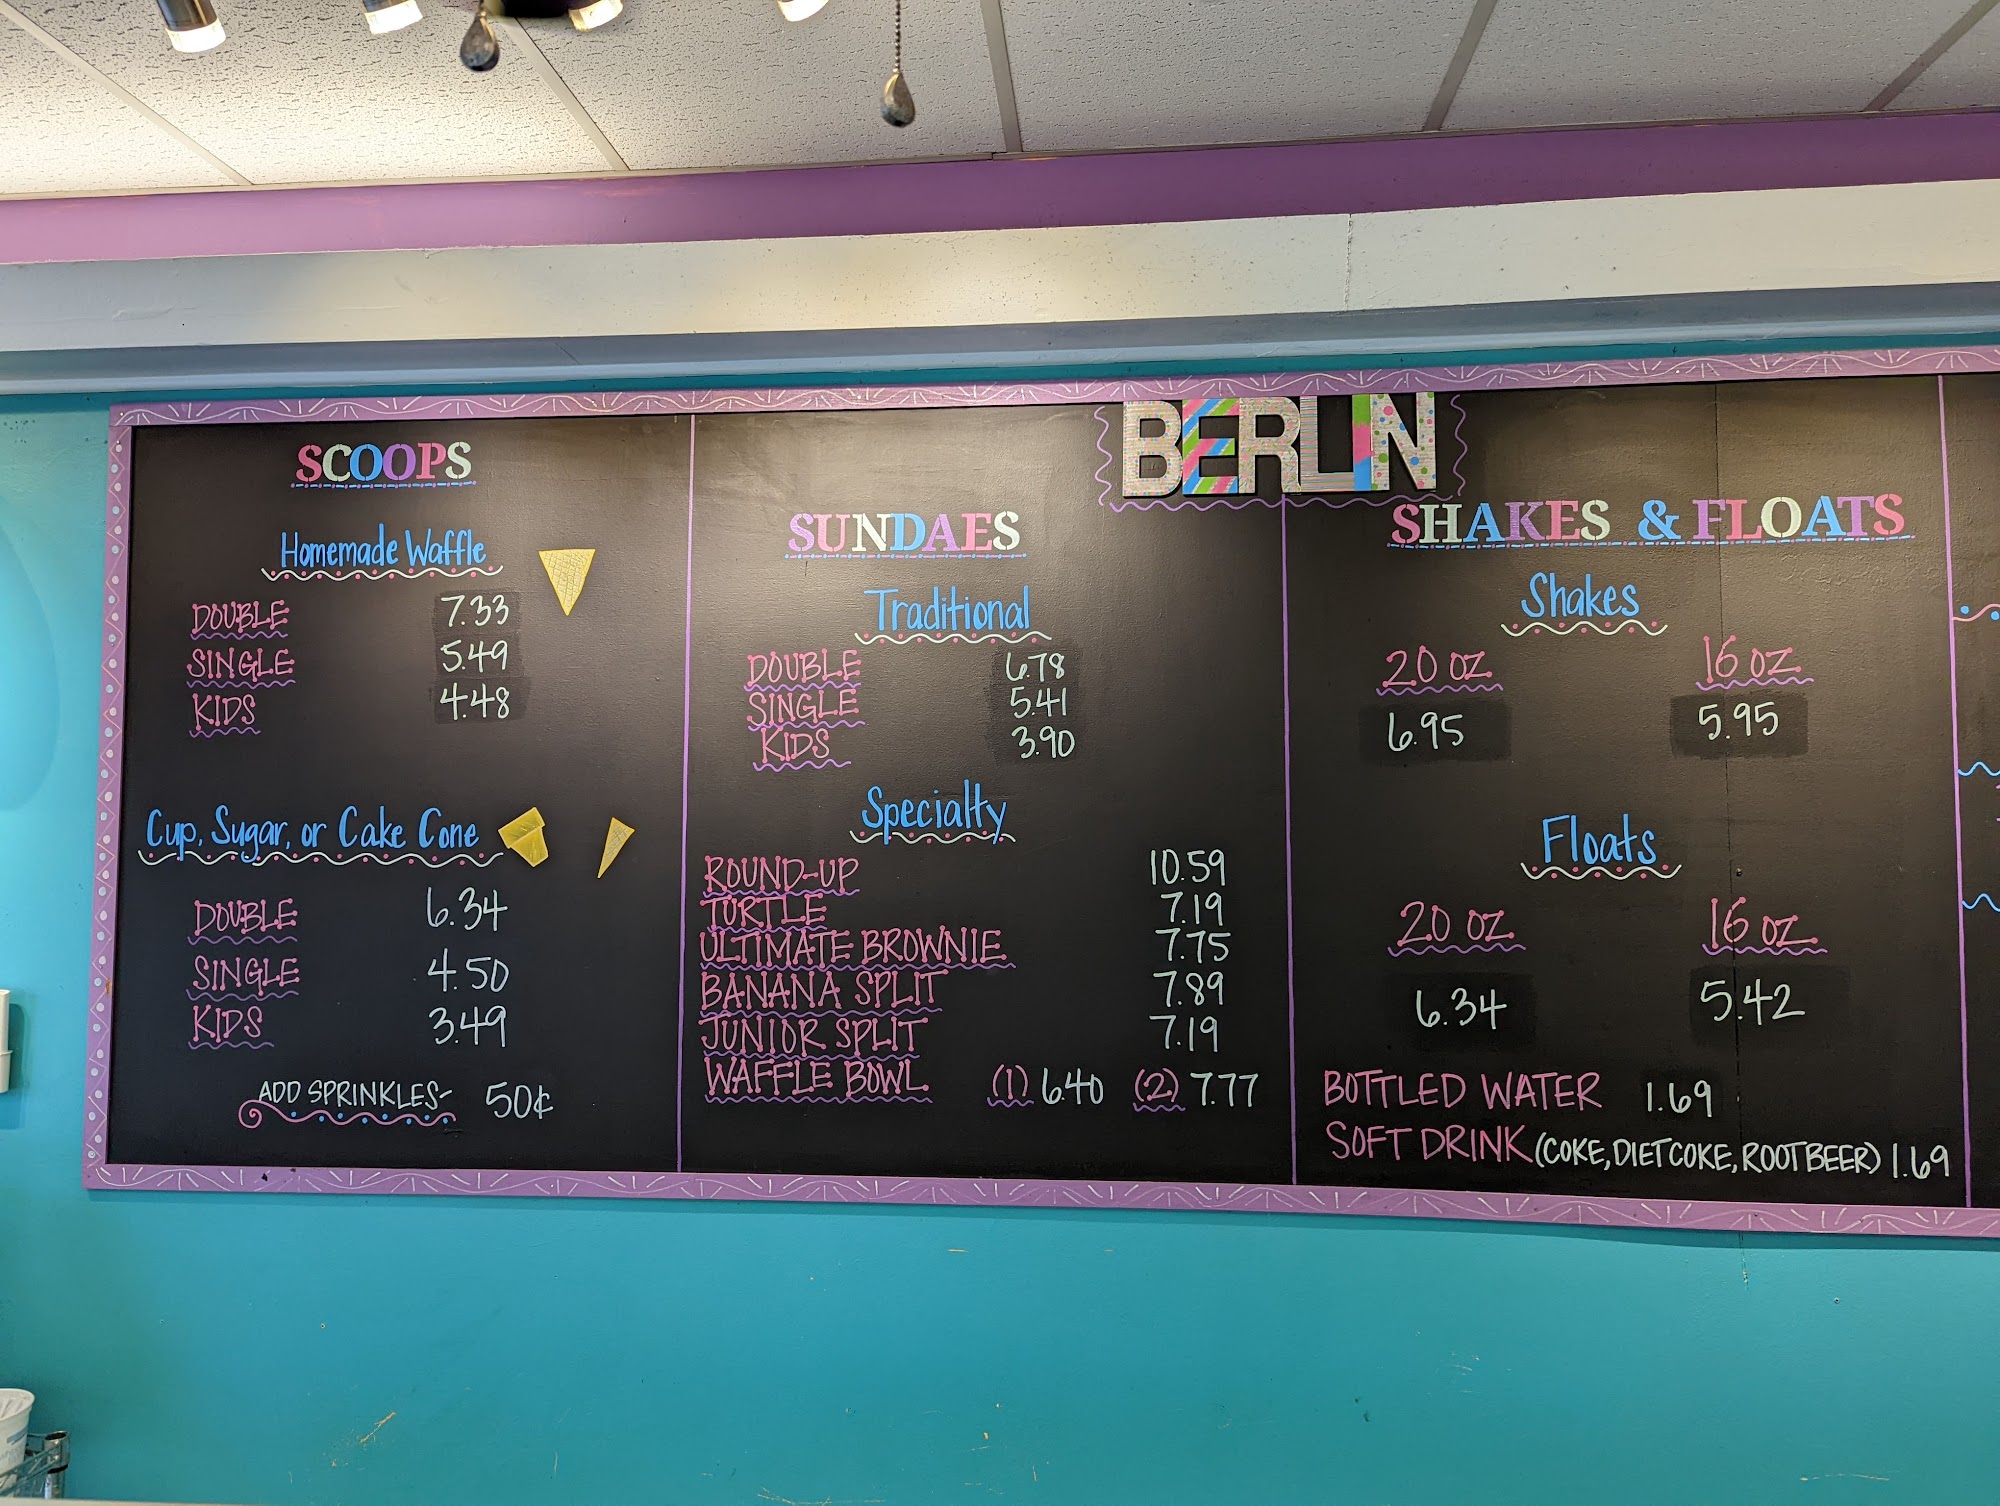 BERLIN
SCOOPS
Homemade Waffle
DOUBLE 7.33
SINGLE 5.49
KIDS 4.48
Cup, Sugar, or Cake Cone
DOUBLE 6.34
SINGLE 4.50
KIDS 3.49
ADD SPRINKLES- 50¢
SUNDAES
Traditional
DOUBLE 6.78
SINGLE 5.41
KIDS 3.90
Specialty
ROUND-UP 10.59
TURTLE 7.19
ULTIMATE BROWNIE 7.75
BANANA SPLIT 7.89
JUNIOR SPLIT 7.19
WAFFLE BOWL (1) 6.40 (2) 7.77
SHAKES & FLOATS
Shakes
20 OZ 16 OZ
6.95 5.95
Floats
20 OZ 16 OZ
6.34 5.42
BOTTLED WATER 1.69
SOFT DRINK (COKE, DIET COKE, ROOT BEER) 1.69